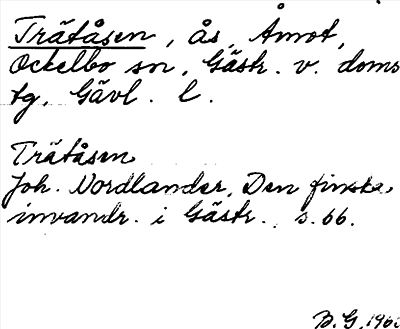 Trätåsen, ås, Åmot,
Ockelbo sn, Gästr. v. doms
tg, Gävl. l.
Trätåsen
Joh. Nordlander, Den finska
invandr. i Gästr., s. 66.
B.G, 196